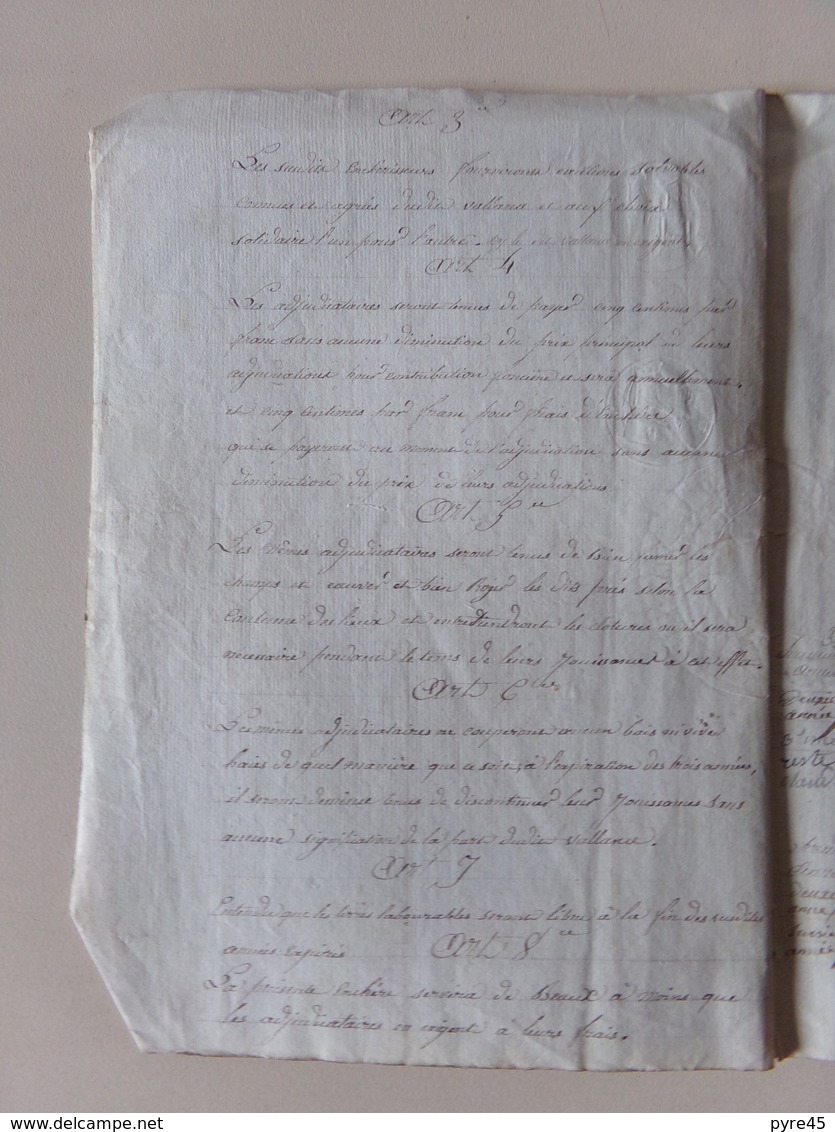 Art 3
Les susdits Encherisseurs fourniront cautions solvables
connus et agrées dudit Vallana et auf choix
solidaire l'un pour l'autre. Sy le dit Vallana en exigent.
Art 4
Les adjudicataires seront tenus de payer cinq centimes par
franc sans aucune diminution du prix principal de leurs
adjudications pour contribution fonciere et sera annuellement.
et cinq centimes par franc pour frais d'
qui se payeront au moment de l'adjudication sans aucune
diminution du prix de leurs adjudications
Art 5 e
Les mêmes adjudicataires seront tenus de bien fumer les
champs et et bien les dits prés selon la
Coutume des lieux et entretiendront les clotures ou il sera
necessaire pendant le tems de leurs Jouissances à cet effet.
Art 6 e
Les mêmes adjudicataires ne couperont aucun bois ni vive
haies de quel manière que ce soit, à l'expiration des trois années,
il seront tenus de discontinuer leur Jouissances sans
aucune signifiation de la part dudit Vallana.
Art 7
Entendu que les labourables seront libre à la fin des susdites
années Expirés
Art 8 e
La présente Enchére servira de Beaux à moins que
les adjudicataires en exigent à leurs frais.
année
reste
année
delcampe.net
pyre45